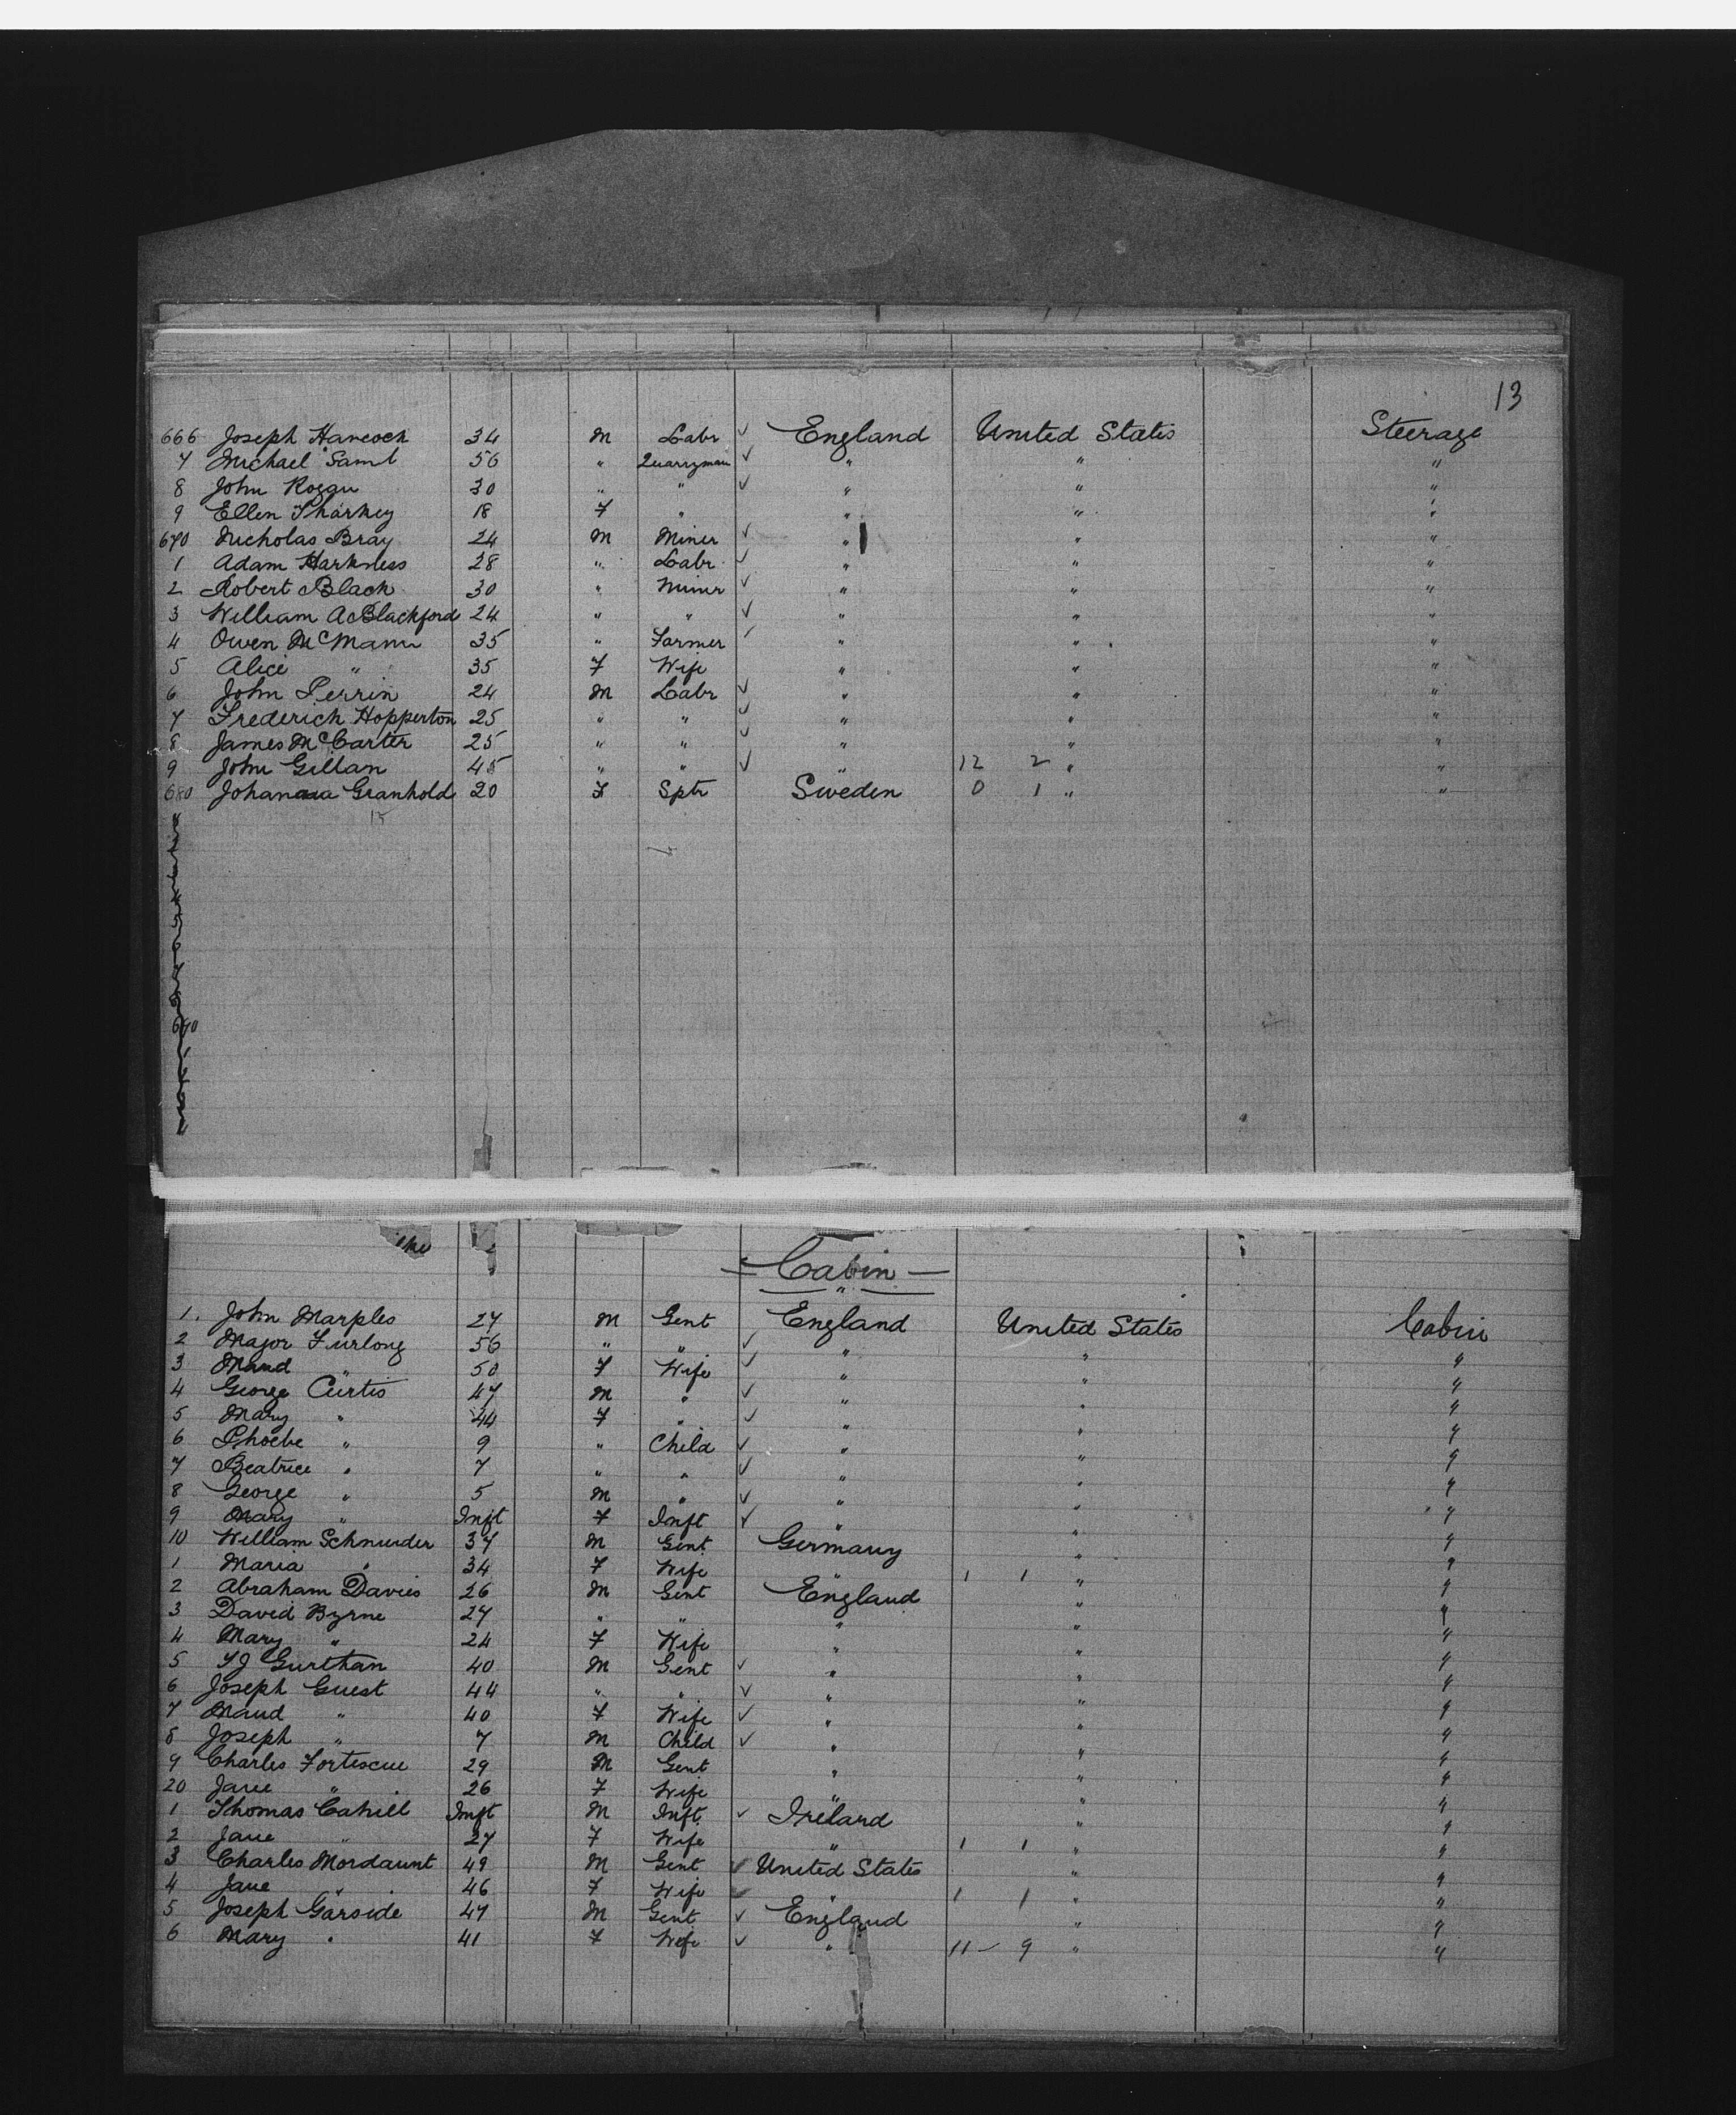 13
666 Joseph Hancock 34 M Labr ✓ England United States Steerage
7 Michael Saml 56 " Quarryman ✓ " " "
8 John Rogan 30 " " ✓ " " "
9 Ellen Sharkey 18 F " " " "
670 Nicholas Bray 24 M Miner ✓ " " "
1 Adam Harkness 28 " Labr ✓ " " "
2 Robert Black 30 " Miner ✓ " " "
3 William A Blackford 24 " " ✓ " " "
4 Owen McMann 35 " Farmer ✓ " " "
5 Alice " 35 F Wife " " "
6 John Perrin 24 M Labr ✓ " " "
7 Frederich Hopperton 25 " " ✓ " " "
8 James McCarter 25 " " ✓ " " "
9 John Gillan 45 " " ✓ " 12 2 " "
680 Johanna Granhold 20 F Sptr Sweden 0 1 " "
15
690
Cabin
1. John Marples 27 M Gent England United States Cabin
2 Major Furlong 56 " " ✓ " " "
3 Maud " 50 F Wife ✓ " " "
4 George Curtis 47 M " ✓ " " "
5 Mary " 44 F " ✓ " " "
6 Phoebe " 9 " Child ✓ " " "
7 Beatrice " 7 " " ✓ " " "
8 George " 5 M " ✓ " " "
9 Mary " Inft F Inft ✓ " " "
10 William Schnieider 37 M Gent Germany " "
1 Maria " 34 F Wife " 1 1 " "
2 Abraham Davies 26 M Gent England " "
3 David Byrne 27 " " " " "
4 Mary " 24 F Wife " " "
5 Gurthan 40 M Gent ✓ " " "
6 Joseph Guest 44 " " ✓ " " "
7 Maud " 40 F Wife ✓ " " "
8 Joseph " 7 M Child ✓ " " "
9 Charles Fortescue 29 M Gent " " "
20 Jane " 26 F Wife " " "
1 Thomas Cahill Inft M Inft ✓ Ireland " "
2 Jane " 27 F Wife " 1 1 " "
3 Charles Mordaunt 49 M Gent ✓ United States " "
4 Jane " 46 F Wife ✓ " 1 1 " "
5 Joseph Garside 47 M Gent ✓ England " "
6 Mary " 41 F Wife ✓ " 11 - 9 " "